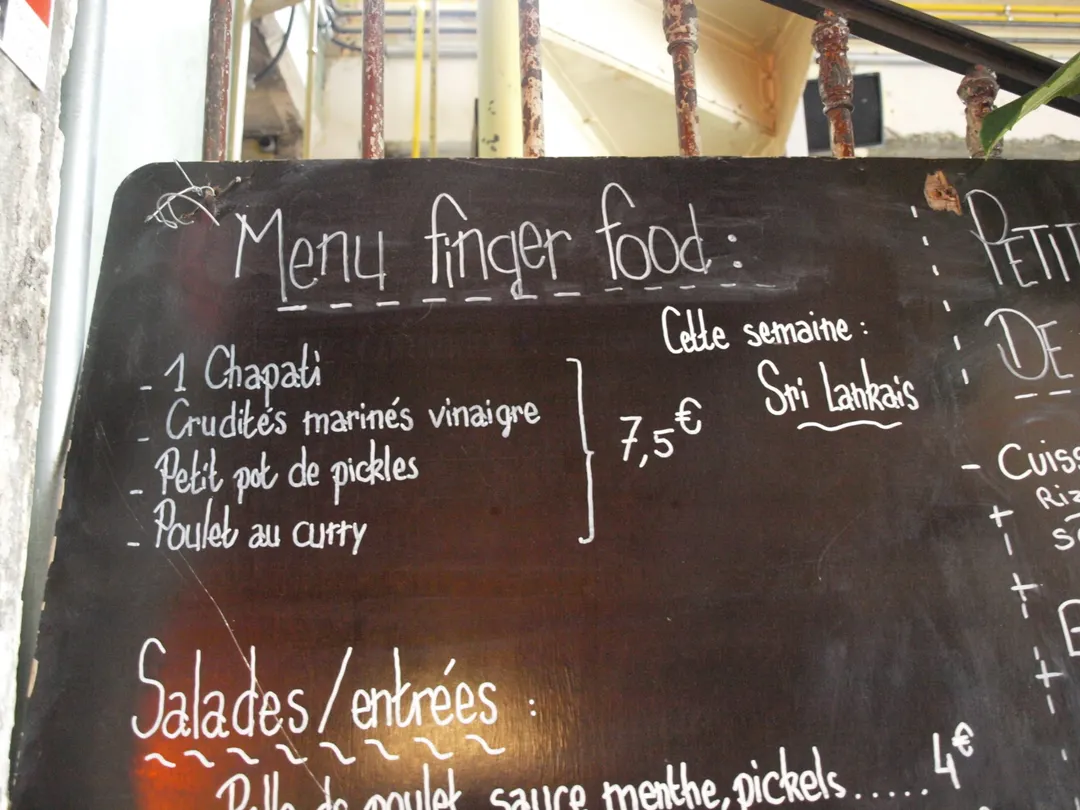 Menu finger food :
Cette semaine :
Sri Lankais
- 1 Chapati
- Crudités marinés vinaigre
- Petit pot de pickles
- Poulet au curry
7,5€
Salades/entrées :
de poulet sauce menthe, pickels..... 4€
PETIT
DE
- CUISS
RIZ